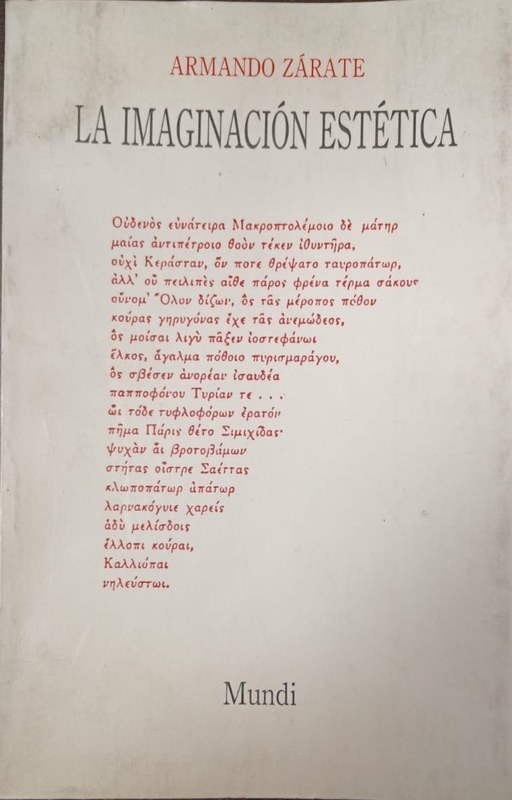 ARMANDO ZÁRATE
LA IMAGINACIÓN ESTÉTICA
Οὐδενὸς εὐνάτειρα Μακροπτολέμοιο δὲ μάτηρ
μαίας ἀντιπέτροιο θοὸν τέκεν ἰθυντῆρα,
οὐχὶ Κεράσταν, ὅν ποτε θρέψατο ταυροπάτωρ,
ἀλλ' οὗ πειλιπὲς αἶθε πάρος φρένα τέρμα σάκους
οὔνομ' Ὅλον δίζων, ὃς τᾶς μέροπος πόθον
κούρας γηρυγόνας ἔχε τᾶς ἀνεμώδεος,
ὃς μοίσαι λιγὺ πᾶξεν ἰοστεφάνωι
ἕλκος, ἄγαλμα πόθοιο πυρισμαράγου,
ὃς σβέσεν ἀνορέαν ἰσαυδέα
παπποφόνου Τυρίαν τε . . .
ὧι τόδε τυφλοφόρων ἐρατόν
πῆμα Πάρις θέτο Σιμιχίδας·
ψυχὰν ἇι βροτοβάμων
στήτας οἶστρε Σαέττας
κλωποπάτωρ ἀπάτωρ
λαρνακόγυιε χαρείς
ἁδὺ μελίσδοις
ἔλλοπι κούραι,
Καλλιόπαι
νηλεύστωι.
Mundi